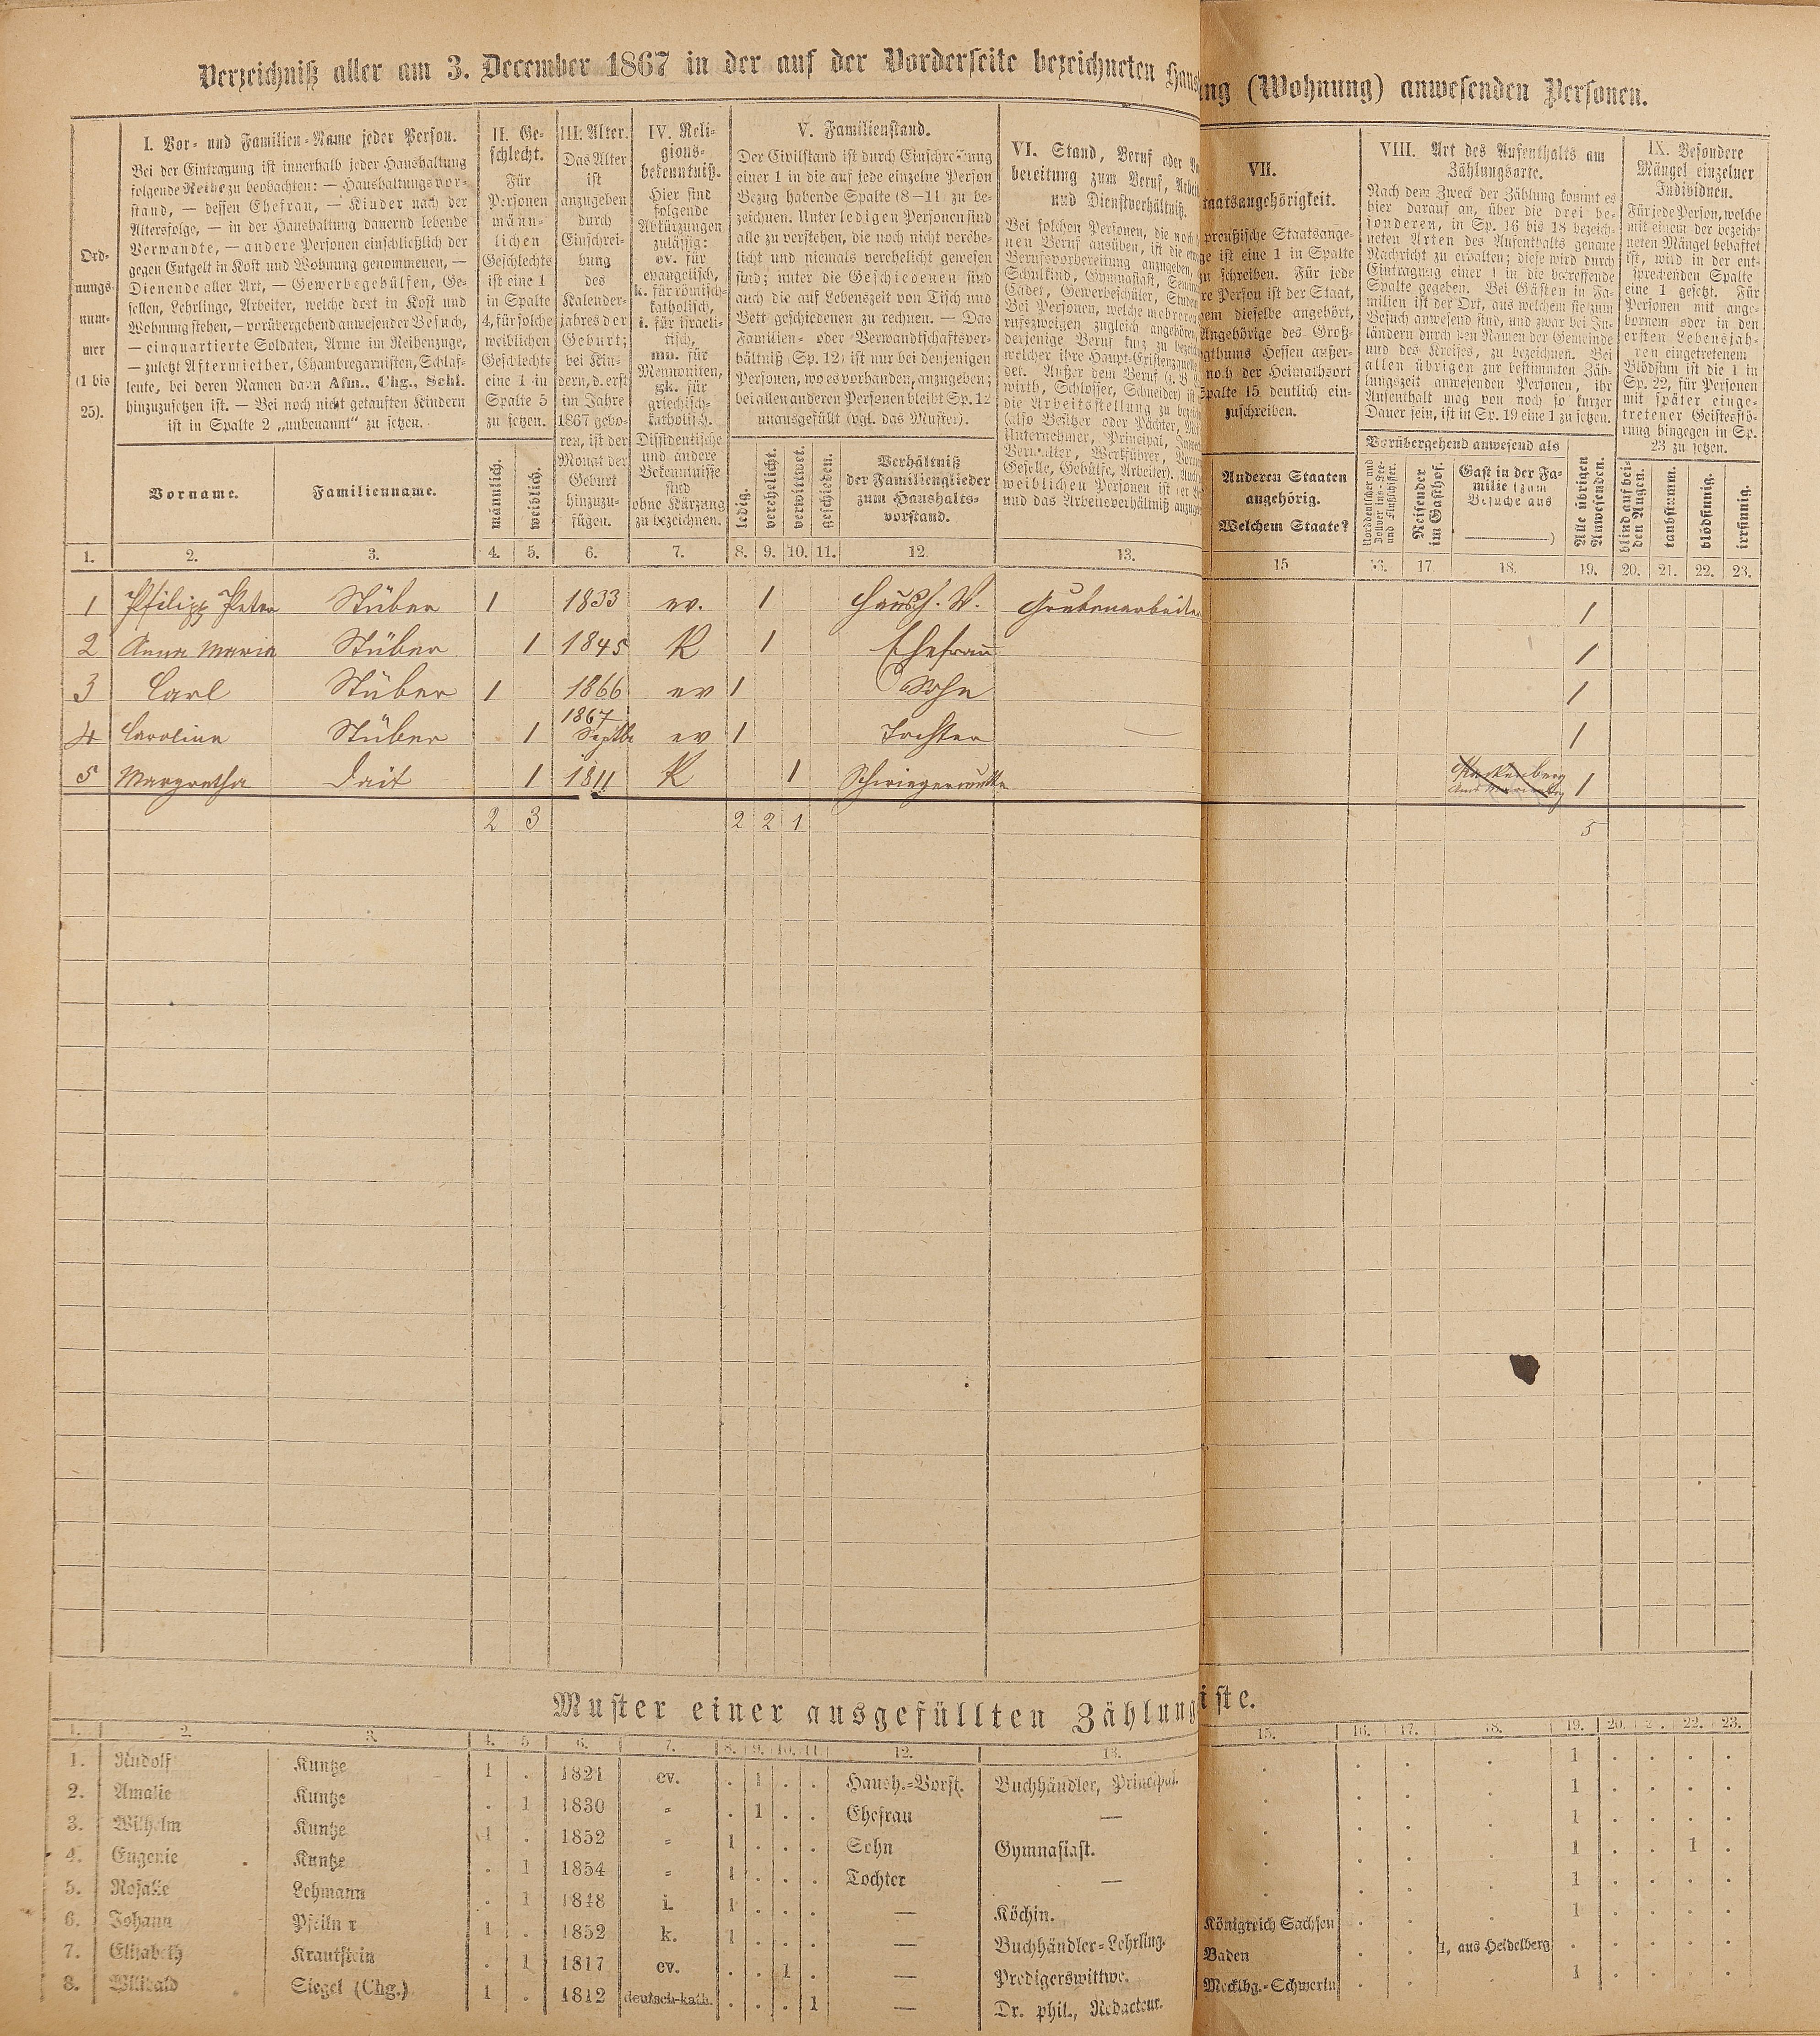 Verzeichniß aller am 3. December 1867 in der auf der Vorderseite bezeichneten Haus
ng (Wohnung) anwesenden Personen.
Ord-
nungs-
num-
mer
(1 bis
25).
I. Vor- und Familien-Name jeder Person.
Bei der Eintragung ist innerhalb jeder Haushaltung
folgende Reihe zu beobachten: — Haushaltungsvor-
stand, — dessen Ehefrau, — Kinder nach der
Altersfolge, — in der Haushaltung dauernd lebende
Verwandte, — andere Personen einschließlich der
gegen Entgelt in Kost und Wohnung genommenen, —
Dienende aller Art, — Gewerbegehülfen, Ge-
sellen, Lehrlinge, Arbeiter, welche dort in Kost und
Wohnung stehen, — vorübergehend anwesender Besuch,
— einquartierte Soldaten, Arme im Reihenzuge,
— zuletzt Aftermiether, Chambregarnisten, Schlaf-
leute, bei deren Namen dann Afm., Chg., Schl.
hinzuzusetzen ist. — Bei noch nicht getauften Kindern
ist in Spalte 2 „unbenannt“ zu setzen.
Vorname.
Familienname.
II. Ge-
schlecht.
Für
Personen
männ-
lichen
Geschlechts
ist eine 1
in Spalte
4, für solche
weiblichen
Geschlechts
eine 1 in
Spalte 5
zu setzen.
männlich.
weiblich.
III. Alter.
Das Alter
ist
anzugeben
durch
Einschrei-
bung
des
Kalender-
jahres der
Geburt;
bei Kin-
dern, d. erst
im Jahre
1867 gebo-
ren, ist der
Monat der
Geburt
hinzuzu-
fügen.
IV. Reli-
gions-
bekenntniß.
Hier sind
folgende
Abkürzungen
zulässig:
ev. für
evangelisch,
k. für römisch-
katholisch,
i. für israeli-
tisch,
mn. für
Mennoniten,
gk. für
griechisch-
katholisch.
Dissidentische
und andere
Bekenntnisse
sind
ohne Kürzung
zu bezeichnen.
V. Familienstand.
Der Civilstand ist durch Einschreibung
einer 1 in die auf jede einzelne Person
Bezug habende Spalte (8—11) zu be-
zeichnen. Unter ledigen Personen sind
alle zu verstehen, die noch nicht verehe-
licht und niemals verehelicht gewesen
sind; unter die Geschiedenen sind
auch die auf Lebenszeit von Tisch und
Bett geschiedenen zu rechnen. — Das
Familien- oder Verwandtschaftsver-
hältniß (Sp. 12) ist nur bei denjenigen
Personen, wo es vorhanden, anzugeben;
bei allen anderen Personen bleibt Sp. 12
unausgefüllt (vgl. das Muster).
ledig.
verehelicht.
verwittwet.
geschieden.
Verhältniß
der Familienglieder
zum Haushalts-
vorstand.
VI. Stand, Beruf oder
bereitung zum Beruf,
und Dienstverhältniß.
Bei solchen Personen, die noch
nen Beruf ausüben, ist die
Berufsvorbereitung anzugeben,
Schulkind, Gymnasiast,
Cadet, Gewerbeschüler,
Bei Personen, welche mehreren
rufszweigen zugleich angehören,
derjenige Beruf kurz zu
welcher ihre Haupt-Existenzquelle
det. Außer dem Beruf (z. B.
wirth, Schlosser, Schneider) ist
die Arbeitsstellung zu
(also Besitzer oder Pächter,
Unternehmer, Principal,
Verwalter, Werkführer,
Geselle, Gehülfe, Arbeiter).
weiblichen Personen ist der
und das Arbeitsverhältniß
VII.
taatsangehörigkeit.
preußische Staatsange-
ge ist eine 1 in Spalte
zu schreiben. Für jede
re Person ist der Staat,
em dieselbe angehört,
Angehörige des Groß-
gthums Hessen außer-
noch der Heimathsort
Spalte 15 deutlich ein-
zuschreiben.
Anderen Staaten
angehörig.
Welchem Staate?
VIII. Art des Aufenthalts am
Zählungsorte.
Nach dem Zweck der Zählung kommt es
hier darauf an, über die drei be-
sonderen, in Sp. 16 bis 18 bezeich-
neten Arten des Aufenthalts genaue
Nachricht zu erhalten; diese wird durch
Eintragung einer 1 in die betreffende
Spalte gegeben. Bei Gästen in Fa-
milien ist der Ort, aus welchem sie zum
Besuch anwesend sind, und zwar bei In-
ländern durch den Namen der Gemeinde
und des Kreises, zu bezeichnen. Bei
allen übrigen zur bestimmten Zäh-
lungszeit anwesenden Personen, ihr
Aufenthalt mag von noch so kurzer
Dauer sein, ist in Sp. 19 eine 1 zu setzen.
Vorübergehend anwesend als
Norddeutscher und
Zollvereins-See-
und Flußschiffer.
Reisender
im Gasthof.
Gast in der Fa-
milie (zum
Besuche aus
)
Alle übrigen
Anwesenden.
IX. Besondere
Mängel einzelner
Individuen.
Für jede Person, welche
mit einem der bezeich-
neten Mängel behaftet
ist, wird in der ent-
sprechenden Spalte
eine 1 gesetzt. Für
Personen mit ange-
bornem oder in den
ersten Lebensjah-
ren eingetretenem
Blödsinn ist die 1 in
Sp. 22, für Personen
mit später einge-
tretener Geistesstö-
rung hingegen in Sp.
23 zu setzen.
blind auf bei-
den Augen.
taubstumm.
blödsinnig.
irrsinnig.
1. 2. 3. 4. 5. 6. 7. 8. 9. 10. 11. 12. 13. 15 16. 17. 18. 19. 20. 21. 22. 23.
1 Philipp Peter Stüber 1 1833 ev. 1 Haush. V. Grubenarbeiter 1
2 Anna Maria Stüber 1 1845 K 1 Ehefrau 1
3 Carl Stüber 1 1866 ev 1 Sohn 1
4 Carolina Stüber 1 1867 Septbr ev 1 Tochter — 1
5 Margretha Dait 1 1811 K 1 Schwiegermutter 1
2 3 2 2 1 5
Muster einer ausgefüllten Zählung
iste.
1. 2. 3. 4. 5. 6. 7. 8. 9. 10. 11. 12. 13. 15. 16. 17. 18. 19. 20. 21. 22. 23.
1. Rudolf Kuntze 1 . 1821 ev. . 1 . . Haush.-Vorst. Buchhändler, Principal. . . . . 1 . . . .
2. Amalie Kuntze . 1 1830 „ . 1 . . Ehefrau — . . . . 1 . . . .
3. Wilhelm Kuntze 1 . 1852 „ 1 . . . Sohn Gymnasiast. . . . . 1 . . . .
4. Eugenie Kuntze . 1 1854 „ 1 . . . Tochter — . . . . 1 . . 1 .
5. Rosalie Lehmann . 1 1848 i. 1 . . . — Köchin. . . . . 1 . . . .
6. Johann Pfeilner 1 . 1852 k. 1 . . . — Buchhändler-Lehrling. Königreich Sachsen . . . 1 . . . .
7. Elisabeth Krautstein . 1 1817 ev. . . 1 . — Predigerswittwe. Baden . . 1, aus Heidelberg . . . . .
8. Willibald Siegel (Chg.) 1 . 1812 deutsch-kath. . . . 1 — Dr. phil., Redacteur. Mecklbg.-Schwerin . . . 1 . . . .